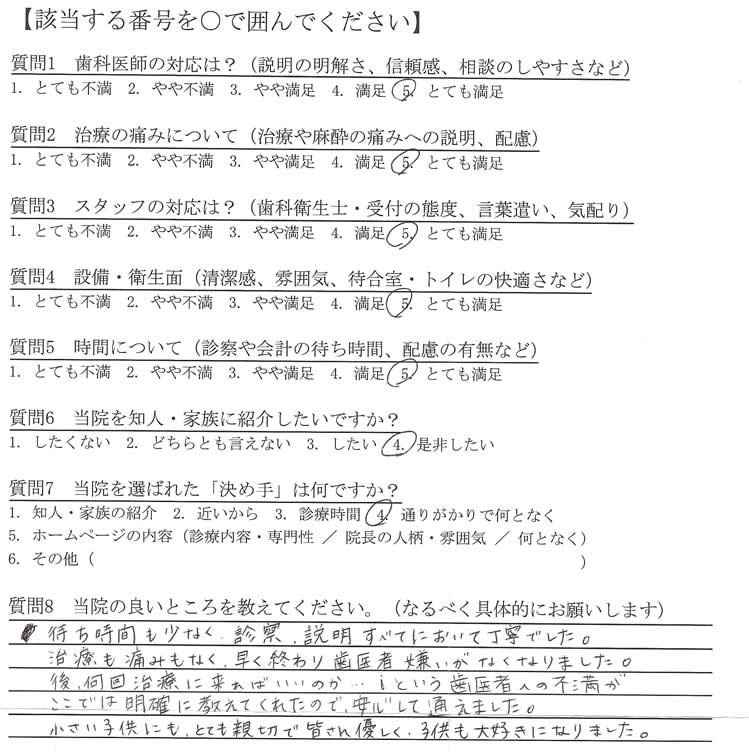 【該当する番号を○で囲んでください】
質問1 歯科医師の対応は？（説明の明解さ、信頼感、相談のしやすさなど）
1. とても不満 2. やや不満 3. やや満足 4. 満足 5. とても満足
質問2 治療の痛みについて（治療や麻酔の痛みへの説明、配慮）
1. とても不満 2. やや不満 3. やや満足 4. 満足 5. とても満足
質問3 スタッフの対応は？（歯科衛生士・受付の態度、言葉遣い、気配り）
1. とても不満 2. やや不満 3. やや満足 4. 満足 5. とても満足
質問4 設備・衛生面（清潔感、雰囲気、待合室・トイレの快適さなど）
1. とても不満 2. やや不満 3. やや満足 4. 満足 5. とても満足
質問5 時間について（診察や会計の待ち時間、配慮の有無など）
1. とても不満 2. やや不満 3. やや満足 4. 満足 5. とても満足
質問6 当院を知人・家族に紹介したいですか？
1. したくない 2. どちらとも言えない 3. したい 4. 是非したい
質問7 当院を選ばれた「決め手」は何ですか？
1. 知人・家族の紹介 2. 近いから 3. 診療時間 4. 通りがかりで何となく
5. ホームページの内容（診療内容・専門性 ／ 院長の人柄・雰囲気 ／ 何となく）
6. その他（ ）
質問8 当院の良いところを教えてください。（なるべく具体的にお願いします）
待ち時間も少なく、診察、説明すべてにおいて丁寧でした。
治療も痛みもなく、早く終わり歯医者嫌いがなくなりました。
後、何回治療に来ればいいのか…という歯医者への不満が
ここでは明確に教えてくれたので、安心して通えました。
小さい子供にも、とても親切で皆さん優しく、子供も大好きになりました。